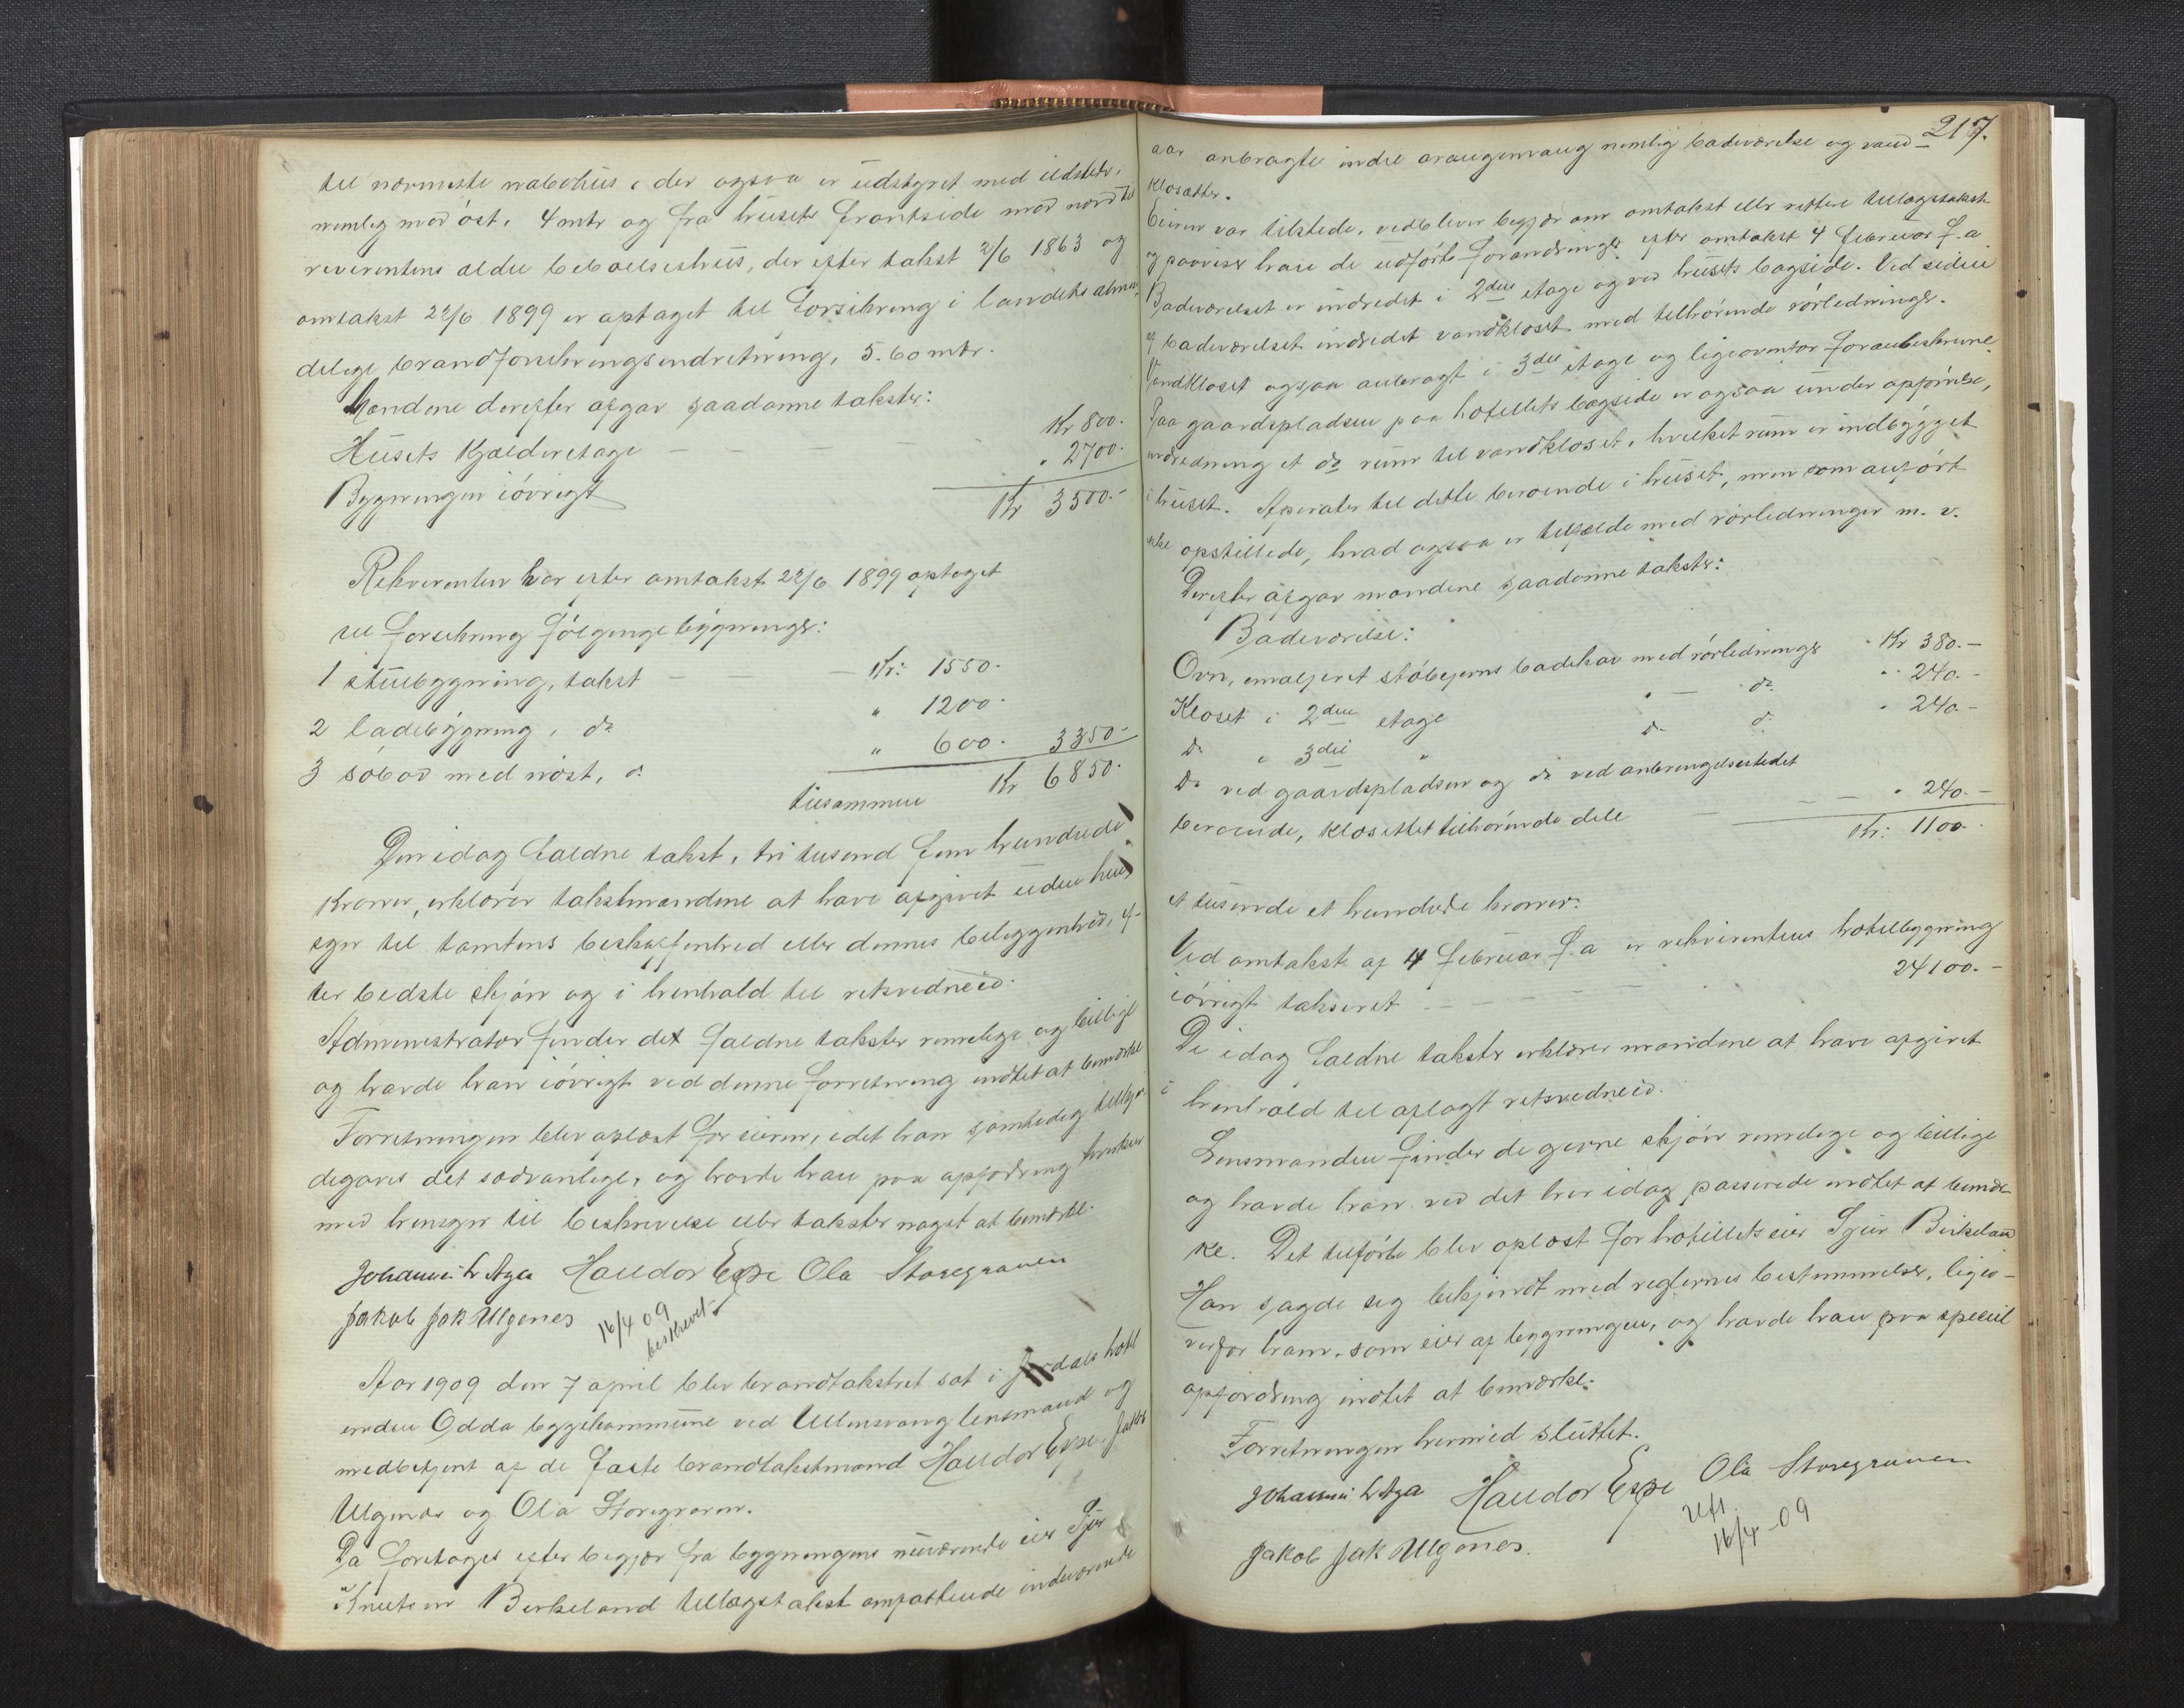 til nærmeste nabohus, der ogsaa er udstyret med ildsteder,
nemlig mod öst, 4 mtr og fra husets frontside mod nord til
reverentens ældre beboelseshus, der efter takst 2/6 1863 og
omtakst 22/6 1899 er optaget til forsikring i landets almin-
delige brandforsikringsindretning, 5.60 mtr.
Mændene derefter afgav saadanne takster:
Husets kjælderetage — — Kr 800.
Bygningen iövrigt " 2700.-
Kr 3500.-
Rekvirenten har efter omtakst 22/6 1899 optaget
til forsikring fölgende bygninger:
1 stuebygning, takst — — Kr: 1550.
2 ladebygning, do " 1200.
3 söbod med nöst, do " 600. 3350-
tilsammen Kr 6850.
Den idag faldne takst, tri tusend fem hundrede
kroner, erklærer takstmændene at have afgivet uden hen-
syn til tomtens beskaffenhed eller dennes beliggenhed, ef-
ter bedste skjön og i henhold til retsvidneed.
Administrator finder det faldne takster rimelige og billige
og havde han iövrigt ved denne forretning indtet at bemærke
Forretningen blev oplæst for eieren, idet han samtidig tilkjen-
degaves det sædvanlige, og havde han paa opfordring hverken
med hensyn til beskrivelse eller takster noget at bemærke.
Johannes L Aga Haldor Espe Ola Storegraven
Jakob Jak Ulgenes 16/4 09
beskrevet
Aar 1909 den 7 april blev brandtakstret sat i Jordals hotel
inden Odda byggekommune ved Ullensvang lensmand og
medbetjent af de faste brandtakstmænd Haldor Espe, Jakob
Ulgenes og Ola Storegraven.
Da foretages efter begjær fra bygningens nuværende eier Sjur
Knutsen Birkeland tillægstakst omfattende indeværende
217.
aar anbragte indre arangemang nemlig badeværelse og vand-
klosetter.
Eieren var tilstede, vedblever begjær om omtakst eller rettere tillægstakst
og paaviser han de udförte forandringer efter omtakst 4 februar f.a.
Badeværelset er indredet i 2den etage og ved husets bagside. Ved siden
af badeværelset indredet vandkloset med tilhörende rörledninger.
Vandkloset ogsaa anbragt i 3die etage og ligeovenfor foranbeskrevne.
Paa gaardspladsen paa hotellets bagside er ogsaa under opförelse,
indredning et do rum til vandkloset, hvilket rum er indbygget
i huset. Aperater til dette beroende i huset, men som anfört
ikke opstillede, hvad ogsaa er tilfælde med rörledninger m. v.
Derefter afgav mændene saadanne takster:
Badeværelse:
Ovn, emaljeret stöbejerns badekar med rörledninger " Kr 380.—
Kloset i 2den etage " — do " 240.-
Do " 3die " do do " 240.-
Do ved gaardspladsen og do ved anbringelsestedet
beroende, klosettet tilhörende dele — — " 240.-
Kr: 1100.
et tusende et hundrede kroner.
Ved omtakst af 4 februar f.a er rekvirentens hotelbygning
iövrigt takseret — — — — 24100.-
De idag faldne takster erklærer mændene at have afgivet
i henhold til aflagt retsvidneed.
Lensmanden finder de givne skjön rimelige og billige
og havde han ved det her idag passerede indtet at bemær-
ke. Det tilförte blev oplæst for hotellets eier Sjur Birkeland
Han sagde sig bekjendt med reglernes bestemmelser, ligeo-
verfor ham, som eier af bygningen, og havde han paa speciel
opfordring indtet at bemærke.
Forretningen hermed sluttet.
Johannes L Aga Haldor Espe Ola Storegraven
Jakob Jak Ulgenes. Utf.
16/4-09